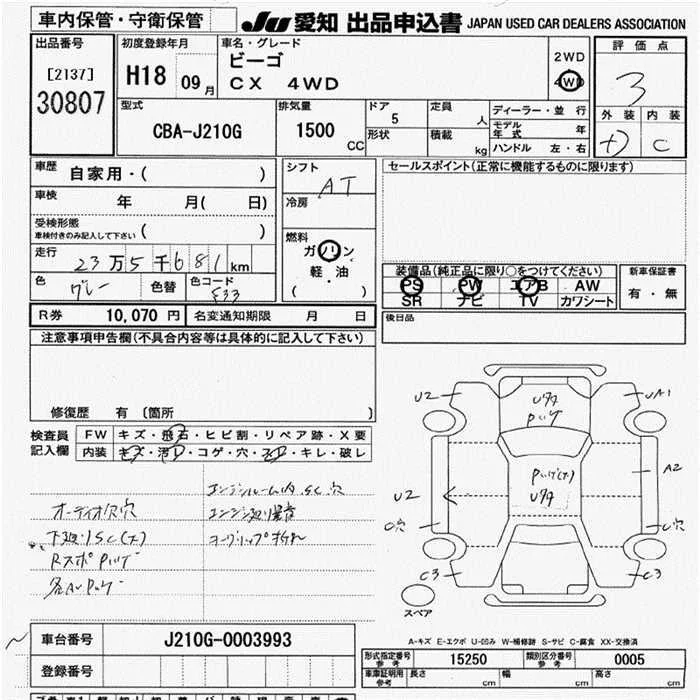 車内保管・守衛保管
JU 愛知 出品申込書 JAPAN USED CAR DEALERS ASSOCIATION
出品番号
[2137]
30807
初度登録年月
H18 09月
車名・グレード
ビーゴ
CX 4WD
2WD
4WD
評価点
3
外装 内装
+D C
型式
CBA-J210G
排気量
1500 CC
ドア
5
形状
定員
人
積載
kg
ディーラー・並行
モデル年式 年
ハンドル 左・右
車歴
自家用・( )
車検
年 月( 日)
受検形態
車検付きのみ記入して下さい ( )
走行
23万5千681km
色
グレー
色替
色コード
S33
シフト
AT
冷房
燃料
ガソリン
軽・油
( )
セールスポイント(正常に機能するものに限ります)
装備品(純正品に限り○をつけてください)
PS PW エアB AW
SR ナビ TV カワシート
新車保証書
有・無
後日品
R券 10,070 円
名変通知期限 月 日
注意事項申告欄(不具合内容等は具体的に記入して下さい)
修復歴 有 〔箇所 〕
検査員記入欄
FW キズ・飛石・ヒビ割・リペア跡・X要
内装 キズ・汚れ・コゲ・穴・スレ・キレ・破レ
オーディオ欠穴
下廻りSC(大)
Rスポ Pハゲ
各AU Pハゲ
エンジンルーム内SC穴
U2
UA1
Pハゲ
Pハゲ(大)
A2
U2
C3
C3
スペア
A-キズ E-エクボ U-凹み W-補修跡 S-サビ C-腐食 XX-交換済
車台番号 J210G-0003993
登録番号
形式指定番号 参考 15250
類別区分番号 参考 0005
車庫証明用 参考 長さ cm 幅 cm 高さ cm